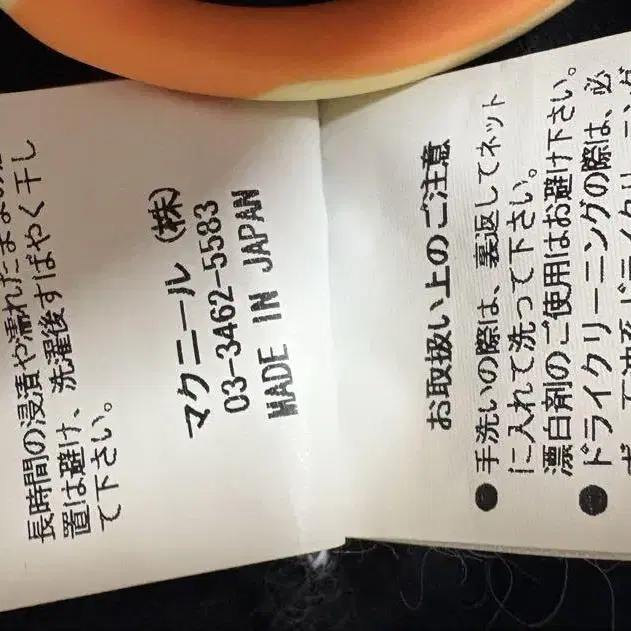 長時間の浸漬や濡れたままの放
置は避け、洗濯後すばやく干し
て下さい。
マクニール(株)
03-3462-5583
MADE IN JAPAN
お取扱い上のご注意
●手洗いの際は、裏返してネット
に入れて洗って下さい。
漂白剤のご使用はお避け下さい。
●ドライクリーニングの際は、必
ず、石油系ドライクリーニング